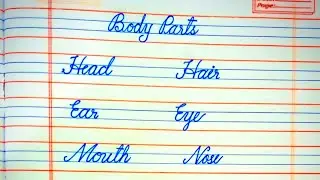 Page:
Body Parts
Head Hair
Ear Eye
Mouth Nose